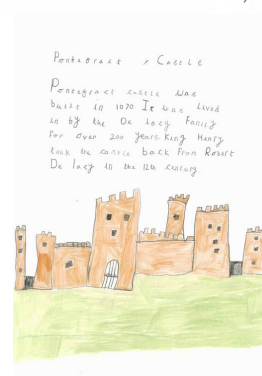 Pontefract Castle
Pontefract castle was
built in 1070 It was lived
in by the De lacy Family
for over 200 years. King Henry
took the castle back from Robert
De lacy in the 12th century